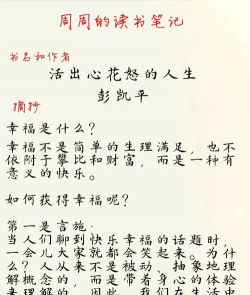 周周的读书笔记
书名和作者
活出心花怒的人生
彭凯平
摘抄
幸福是什么？
幸福不是简单的生理满足，也不
依附于攀比和财富，而是一种有
意义的快乐。
如何获得幸福呢？
第一是言施，
当人们聊到快乐幸福的话题时，
一会儿大家就都会笑起来。为什
么？人从来不是被动、抽象地理
解概念的，而是带着身心的体验
来理解的。因此，我们在生活中